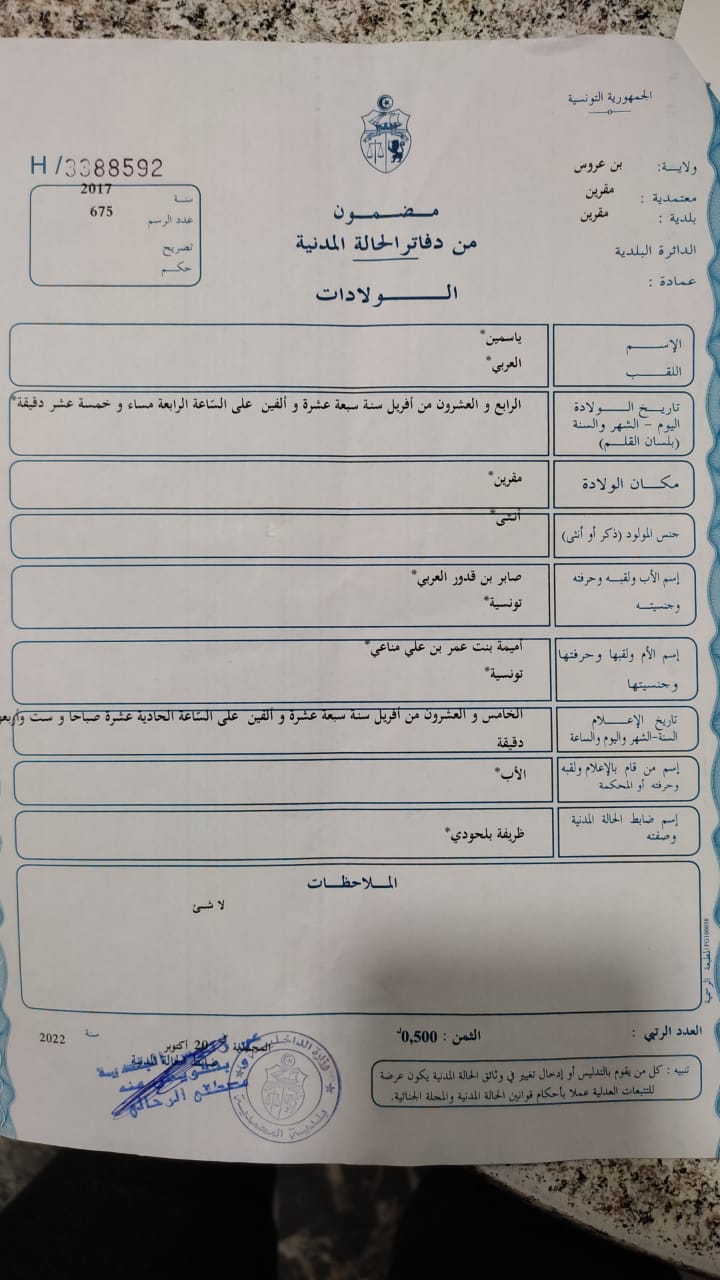 الجمهورية التونسية
ولايــة: بن عروس
معتمدية : مقرين
بلدية : مقرين
الدائرة البلدية
عمادة :
H /3388592
سنة 2017
عدد الرسم 675
تصريح
حكم
مضمون
من دفاتر الحالة المدنية
الـولادات
الإسم ياسمين*
اللقب العربي*
تاريخ الولادة
اليوم – الشهر والسنة
(بلسان القلم)
الرابع و العشرون من أفريل سنة سبعة عشرة و ألفين على السّاعة الرابعة مساء و خمسة عشر دقيقة*
مكان الولادة مقرين*
جنس المولود (ذكر أو أنثى) أنثى*
إسم الأب ولقبه وحرفته
وجنسيته
صابر بن قدور العربي*
تونسية*
إسم الأم ولقبها وحرفتها
وجنسيتها
أميمة بنت عمر بن علي مناعي*
تونسية*
تاريخ الإعلام
السنة-الشهر واليوم والساعة
الخامس و العشرون من أفريل سنة سبعة عشرة و ألفين على السّاعة الحادية عشرة صباحا و ست
دقيقة
إسم من قام بالإعلام ولقبه
وحرفته أو المحكمة
الأب*
إسم ضابط الحالة المدنية
وصفته
ظريفة بلحودي*
الملاحظات
لا شئ
المطبعة الرسمية
العدد الرتبي :
الثمن : 0,500
سنة 2022
أكتوبر
وزارة الداخلية
بلدية المحمدية
تنبيه : كل من يقوم بالتدليس أو إدخال تغيير في وثائق الحالة المدنية يكون عرضة
للتتبعات العدلية عملا بأحكام قوانين الحالة المدنية والمجلة الجنائية.